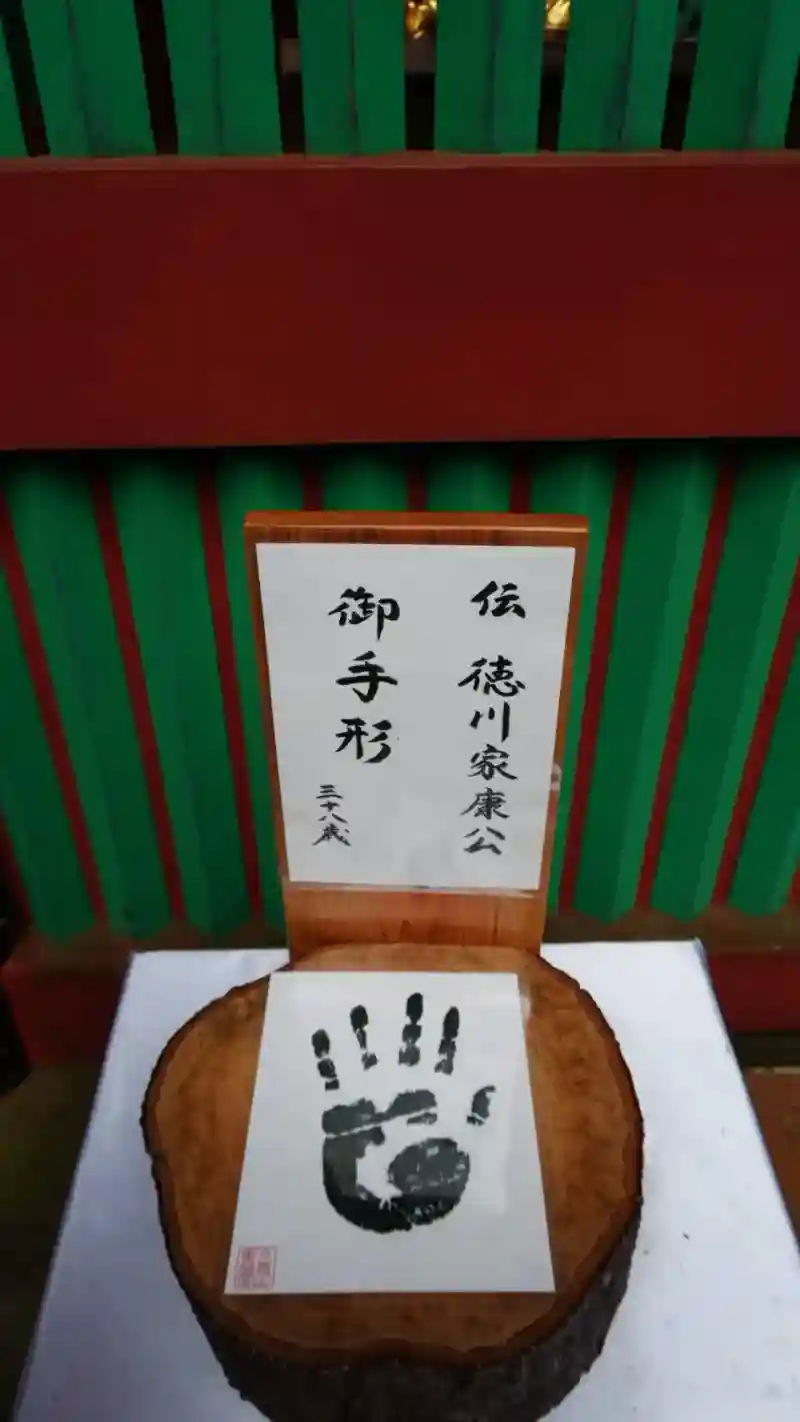 伝 徳川家康公
御手形
三十八歳